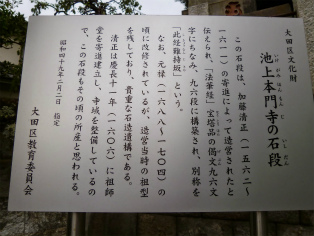 大田区文化財
池上本門寺の石段
いけがみほんもんじ いしだん
この石段は、加藤清正（一五六二〜
一六一一）の寄進によって造営されたと
伝えられ、「法華経」宝塔品の偈文九六文
字にちなみ、九六段に構築され、別称を
「此経難持坂」という。
なお、元禄（一六八八〜一七〇四）の
頃に改修されているが、造営当時の祖型
を残しており、貴重な石造遺構である。
清正は慶長十一年（一六〇六）に祖師
堂を寄進建立し、寺域を整備しているの
で、この石段もその頃の所産と思われる。
昭和四十九年二月二日 指定
大田区教育委員会